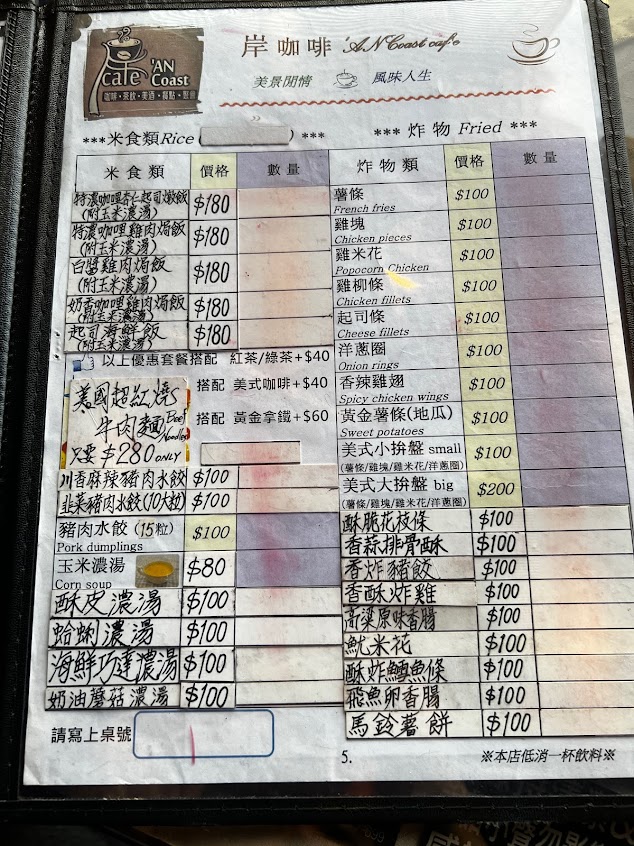 café 'AN Coast
咖啡•茶飲•美酒•餐點•聚會
岸咖啡 'AN Coast cafe
美景閒情 風味人生
***米食類Rice ( ) ***
米食類 價格 數量
特濃咖哩杏仁起司燉飯 (附玉米濃湯) $180
特濃咖哩雞肉焗飯 (附玉米濃湯) $180
白醬雞肉焗飯 (附玉米濃湯) $180
奶香咖哩雞肉焗飯 (附玉米濃湯) $180
起司海鮮飯 $180
以上優惠套餐搭配 紅茶/綠茶+$40
搭配 美式咖啡+$40
搭配 黃金拿鐵+$60
美國超紅燒
牛肉麵 Beef Noodles
只要$280 ONLY
川香麻辣豬肉水餃 $100
韭菜豬肉水餃(10大粒) $100
豬肉水餃 (15粒) $100
Pork dumplings
玉米濃湯 $80
Corn soup
酥皮濃湯 $100
蛤蜊濃湯 $100
海鮮巧達濃湯 $100
奶油蘑菇濃湯 $100
請寫上桌號
*** 炸物 Fried ***
炸物類 價格 數量
薯條 $100
French fries
雞塊 $100
Chicken pieces
雞米花 $100
Popocorn Chicken
雞柳條 $100
Chicken fillets
起司條 $100
Cheese fillets
洋蔥圈 $100
Onion rings
香辣雞翅 $100
Spicy chicken wings
黃金薯條(地瓜) $100
Sweet potatoes
美式小拚盤 small $100
(薯條/雞塊/雞米花/洋蔥圈)
美式大拚盤 big $200
(薯條/雞塊/雞米花/洋蔥圈)
酥脆花枝條 $100
香蒜排骨酥 $100
香炸豬餃 $100
香酥炸雞 $100
高粱原味香腸 $100
魷米花 $100
酥炸鱈魚條 $100
飛魚卵香腸 $100
馬鈴薯餅 $100
5.
※本店低消一杯飲料※